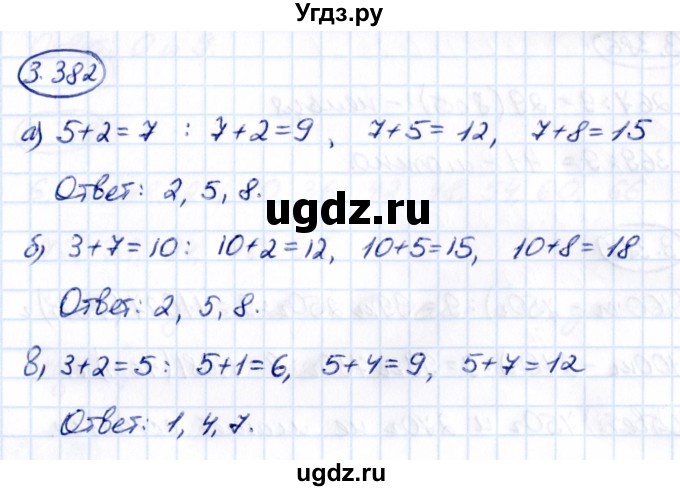 Угдз.ру
3.382
а) 5+2=7 : 7+2=9, 7+5=12, 7+8=15
Ответ: 2, 5, 8.
ugdz.ru
б) 3+7=10: 10+2=12, 10+5=15, 10+8=18
Ответ: 2, 5, 8.
в) 3+2=5: 5+1=6, 5+4=9, 5+7=12
Ответ: 1, 4, 7.
ugdz.ru